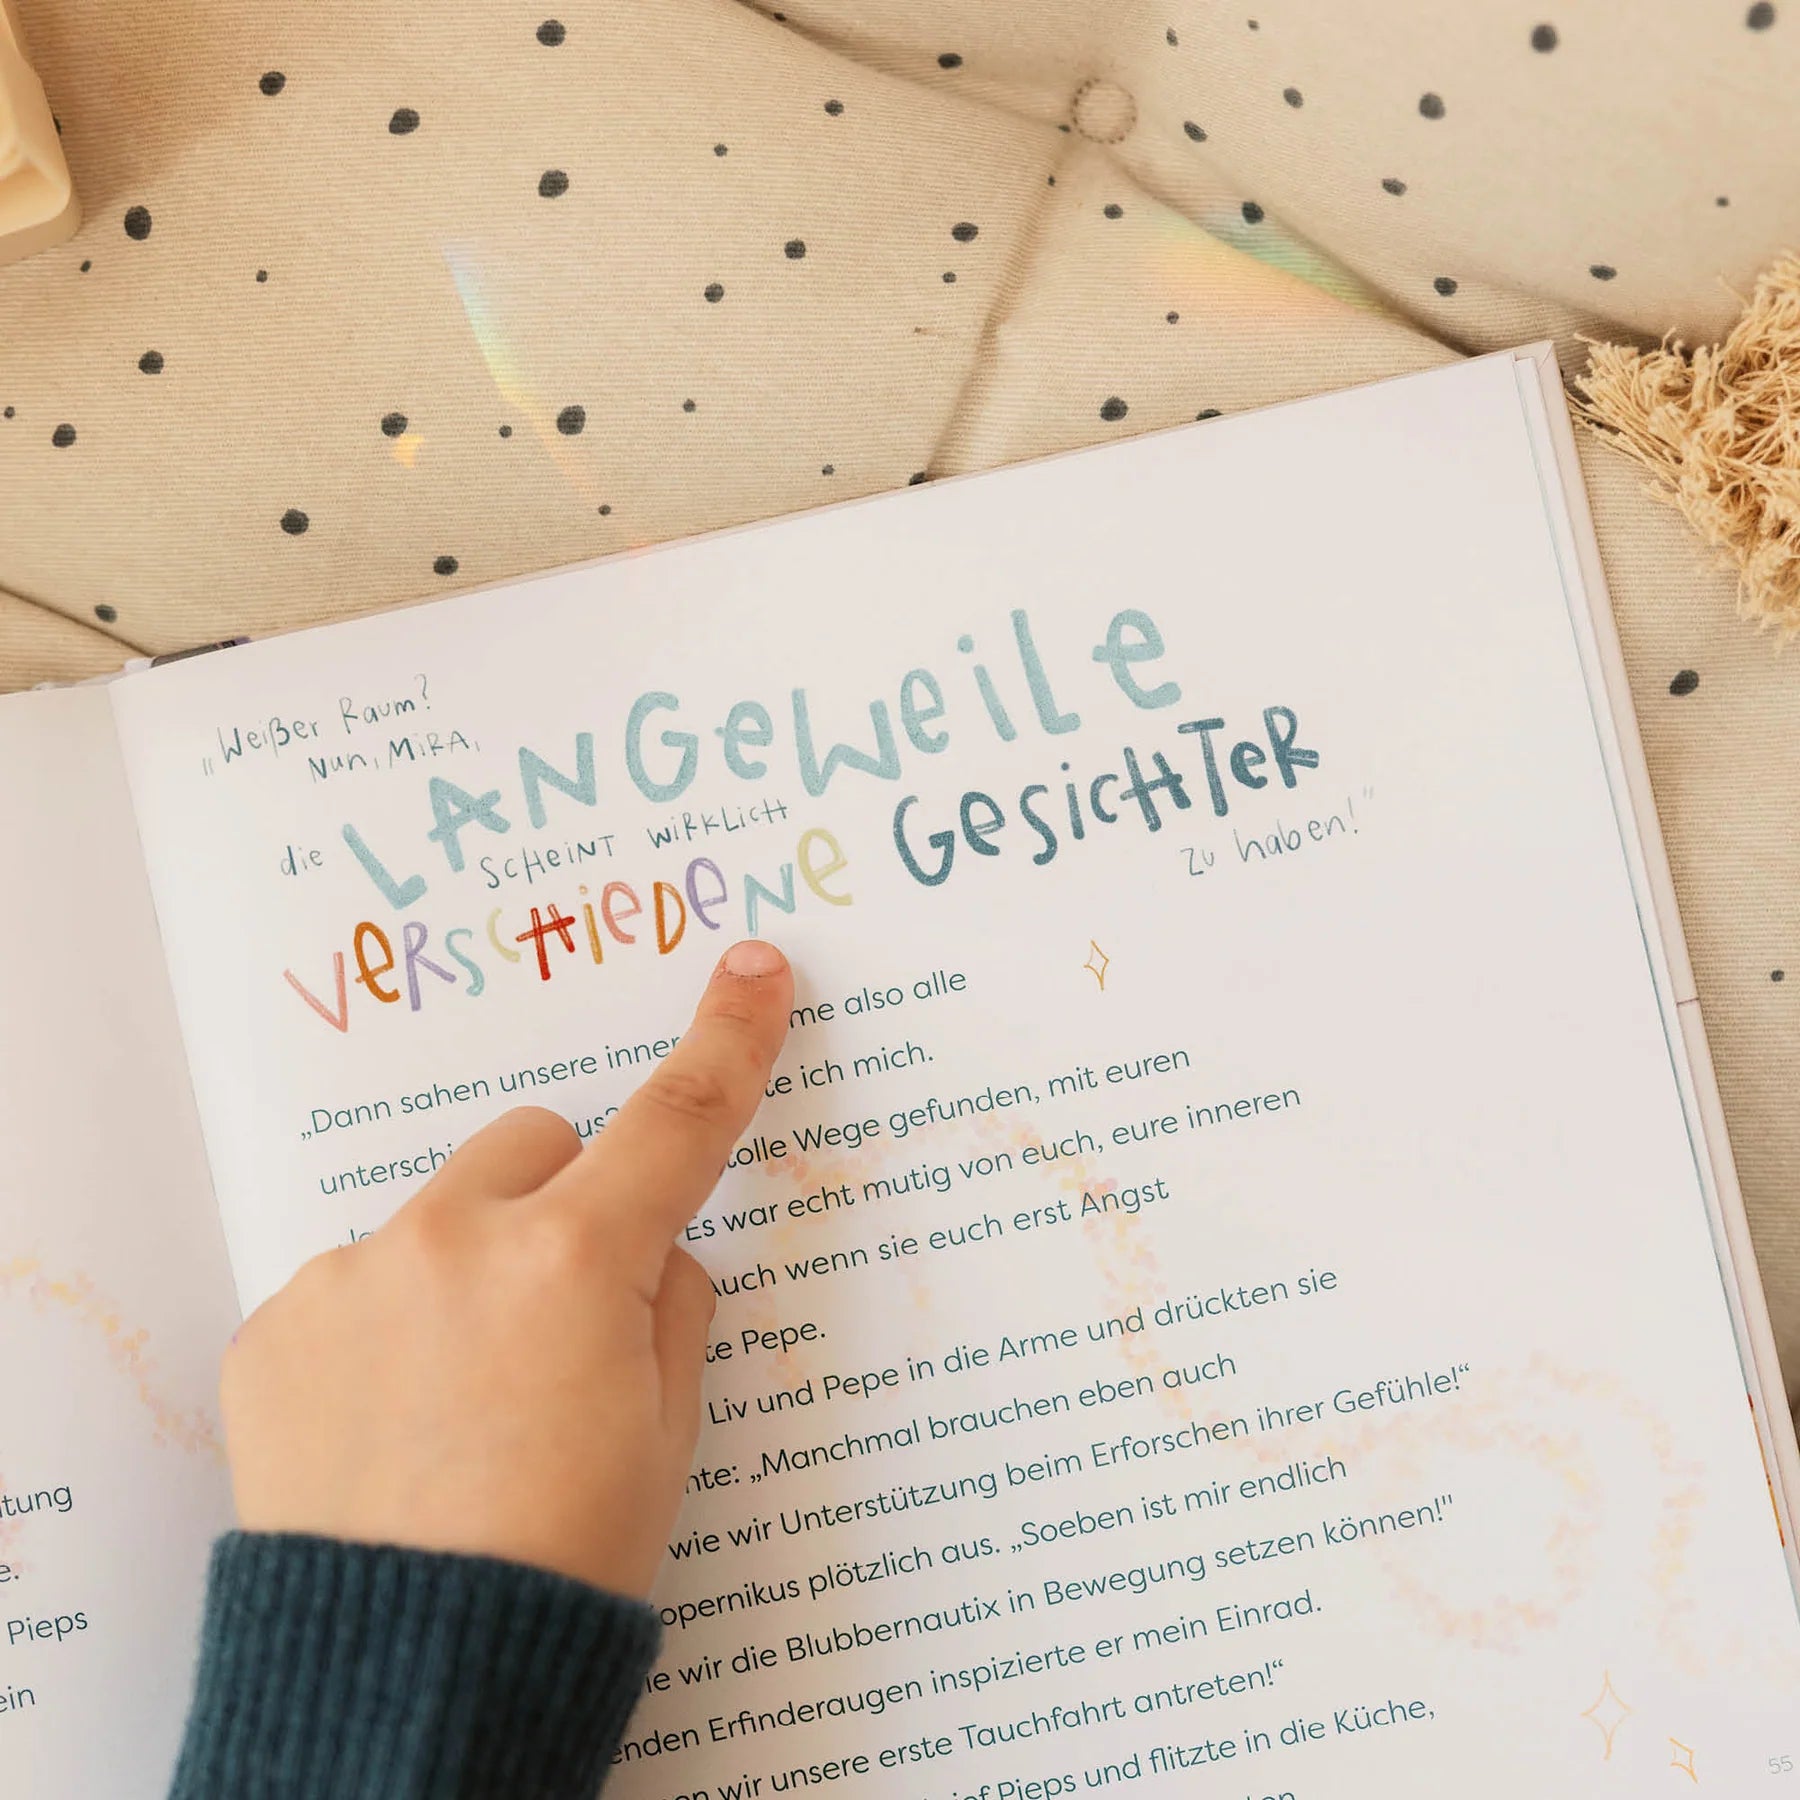 „Weißer Raum?
Nun, Mira,
die LANGEWEILE
scheint wirklich
VERSCHIEDENE GESICHTER
zu haben!“
„Dann sahen unsere also alle
ich mich.
Wege gefunden, mit euren
Es war echt mutig von euch, eure inneren
Auch wenn sie euch erst Angst
Pepe.
Liv und Pepe in die Arme und drückten sie
„Manchmal brauchen eben auch
wie wir Unterstützung beim Erforschen ihrer Gefühle!“
plötzlich aus. „Soeben ist mir endlich
wir die Blubbernautix in Bewegung setzen können!"
Erfinderaugen inspizierte er mein Einrad.
wir unsere erste Tauchfahrt antreten!“
Pieps und flitzte in die Küche,
55
Pieps